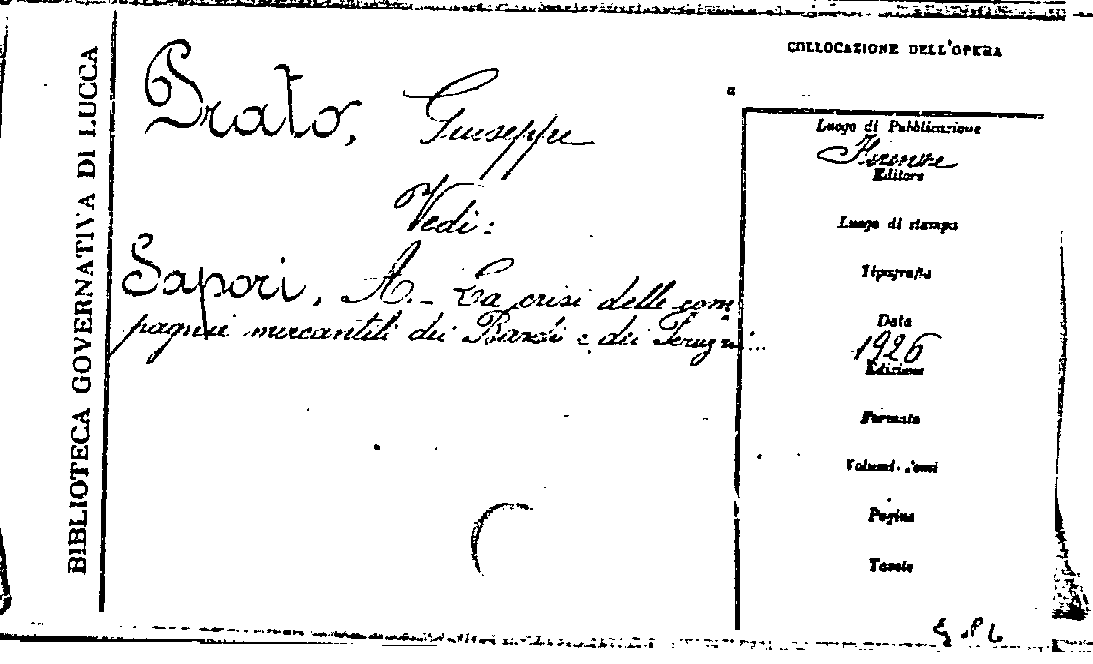 BIBLIOTECA GOVERNATIVA DI LUCCA
Prato, Giuseppe
Vedi:
Sapori, A. - La crisi delle com
pagnie mercantili dei Bardi e dei Peruzzi...
COLLOCAZIONE DELL'OPERA
Luogo di Pubblicazione
Firenze
Editore
Luogo di stampa
Tipografia
Data
1926
Edizione
Formato
Pagine
Tavole